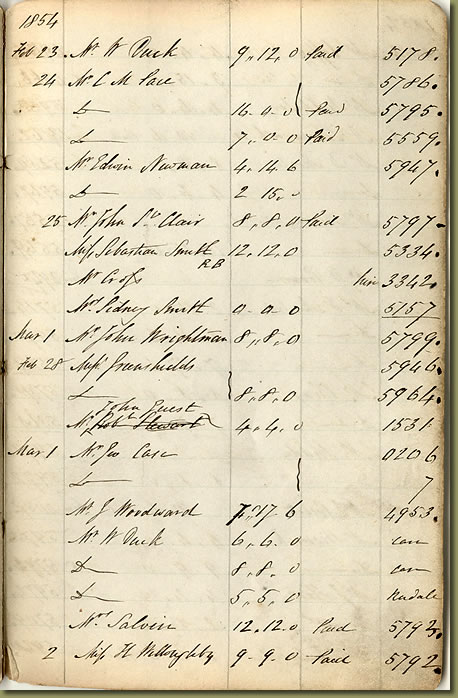 1854
Feb 23. Mr W Duck 9,,12,,0 Paid 5178.
24 Mr C M Pace 5786.
Do 16-0-0 Paid 5795.
Do 7,,0-0 Paid 5559.
Mr Edwin Newman 4,,14,,6 5947.
Do 2 15,,-
25 Mr John St Clair 8,,8,,0 Paid 5797-
Miss Sebastian Smith 12,,12,,0 5334.
RB
Mr Cross hire 3342.
Mrs Sidney Smith 0-0-0 5157
Mar 1 Mr John Wrightman 8,,8,,0 5799.
Feb 28 Miss Greenshields 5946
Do 8,,8,,0 5964.
John Guest
Mr Robt Stewart 4,,4,,0 1531
Mar 1 Mr Geo Case 0206
Do 7
Mr J Woodward 7,,17-6 4953.
Mr W Duck 6,,6,,0 case
Do 8,,8,,0 case
Do 5,,5,,0 Rudall
Mrs Salvin 12.12.0 Paid 5793.
2 Miss H Willoughby 9-9-0 Paid 5792.